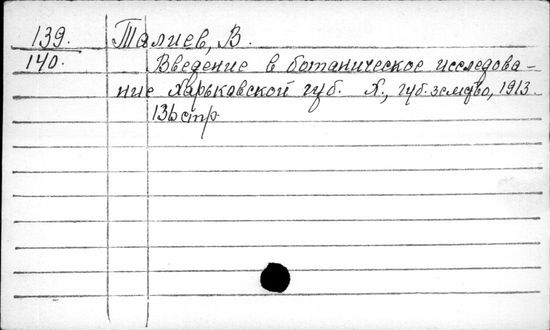 139. Талиев, В.
140. Введение в ботаническое исследова-
ние Харьковской губ. Х., губ. земство, 1913.
136 стр.